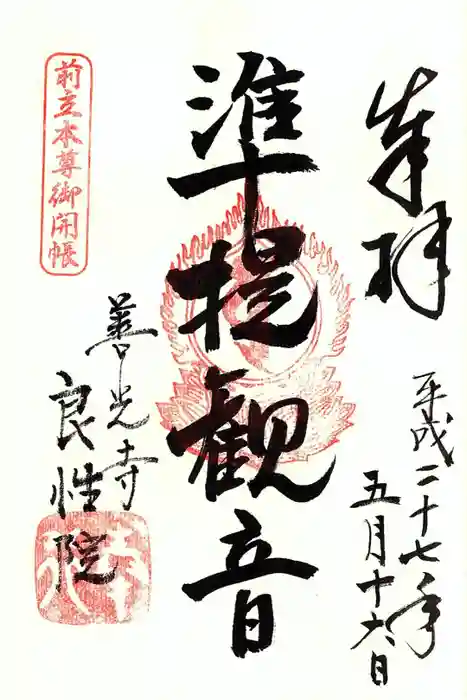 奉拝
平成二十七年
五月十六日
準提観音
前立本尊御開帳
善光寺
良性院